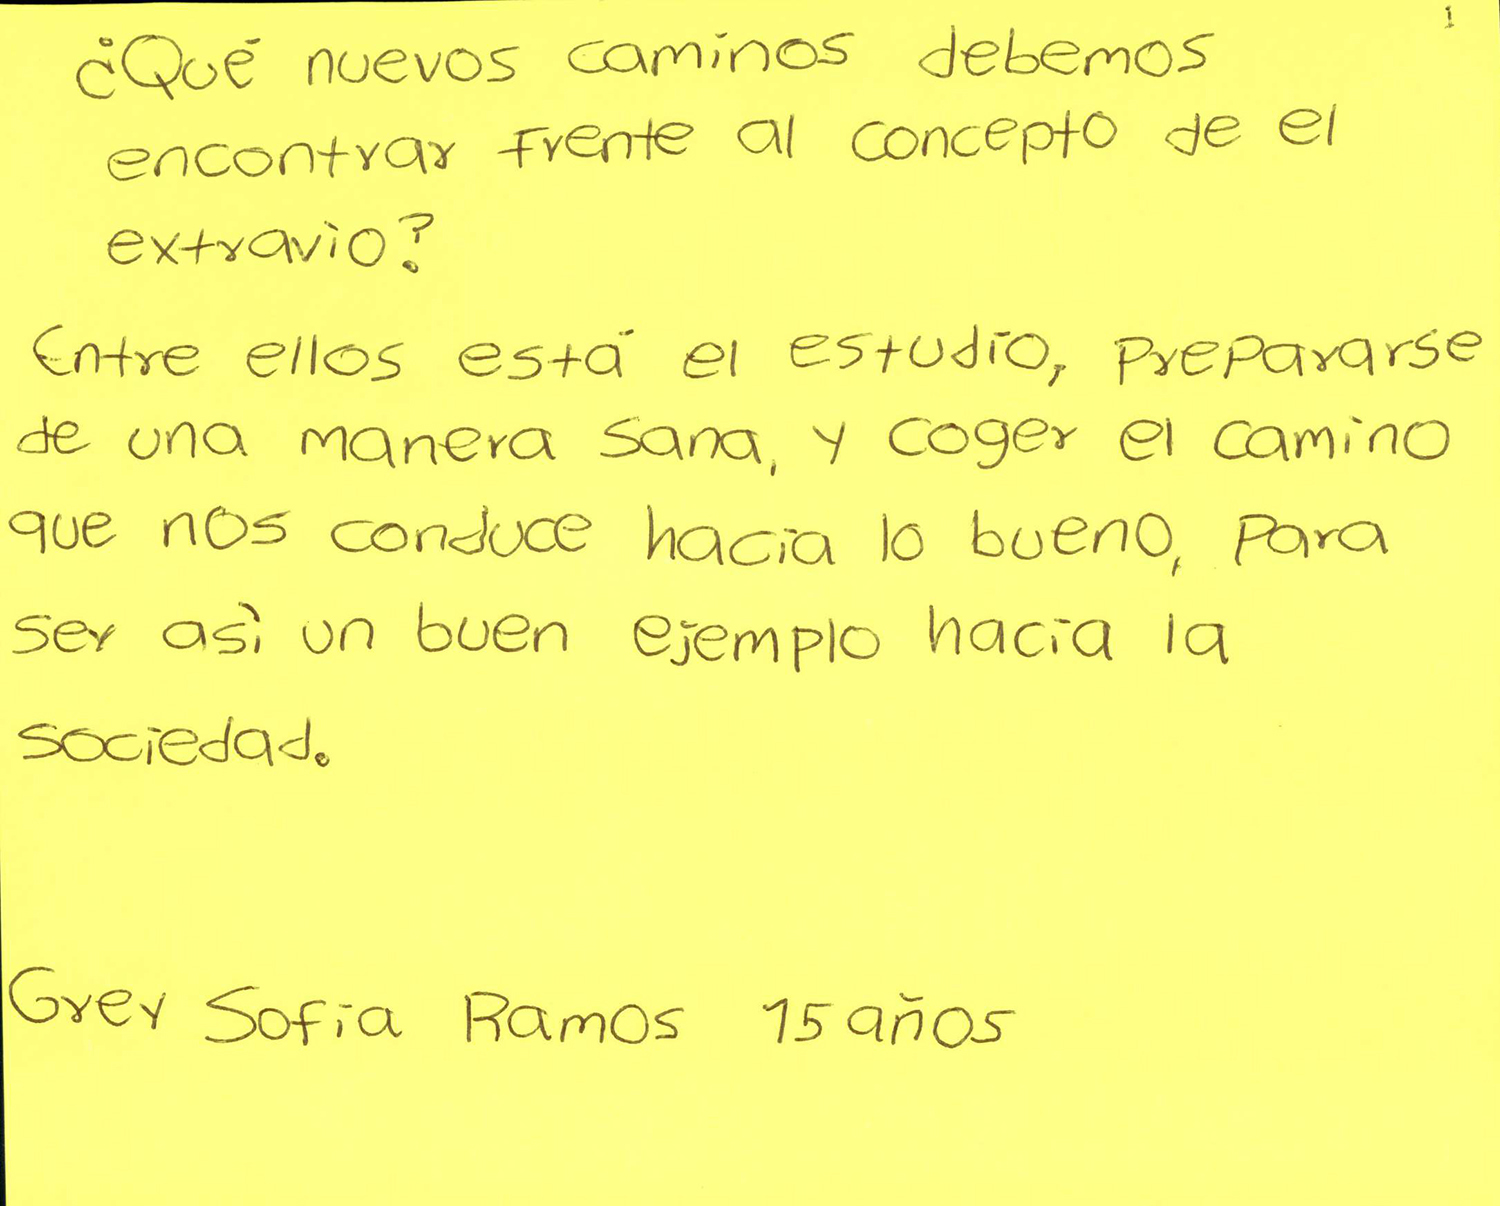 1
¿Qué nuevos caminos debemos
encontrar frente al concepto de el
extravìo?
Entre ellos está el estudio, prepararse
de una manera sana, y coger el camino
que nos conduce hacia lo bueno, para
ser asì un buen ejemplo hacia la
sociedad.
Grey Sofia Ramos 15 años